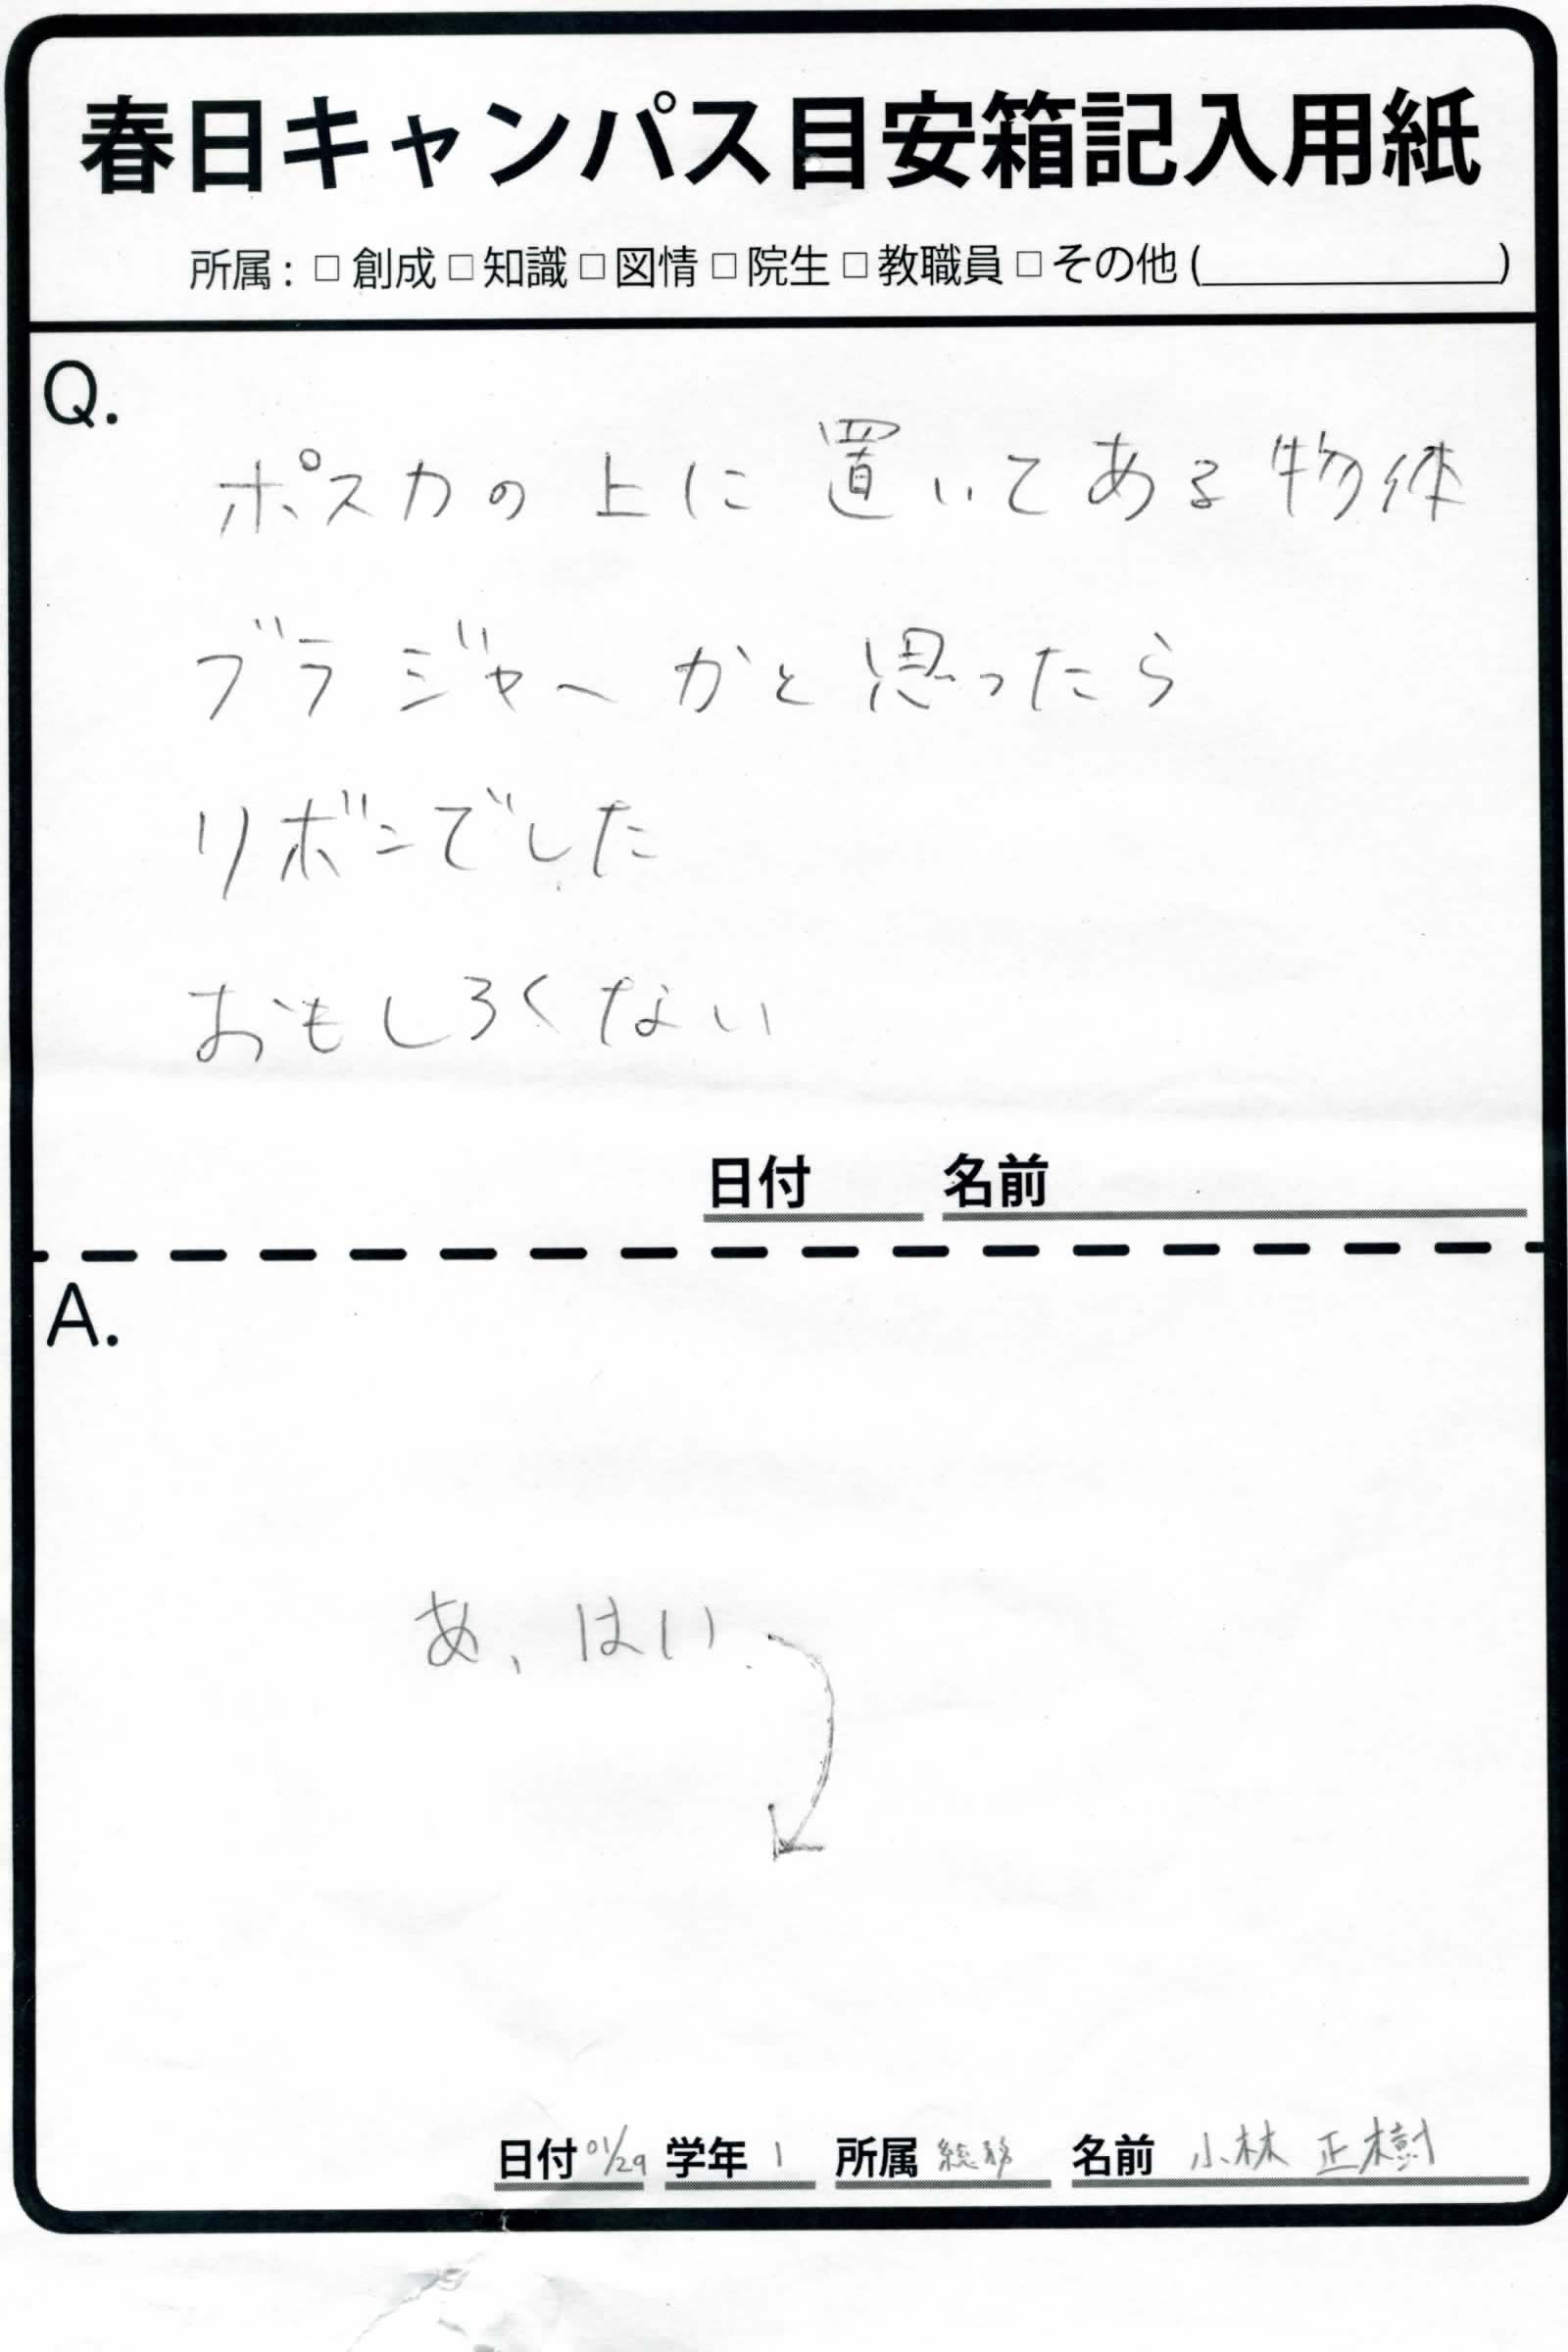 春日キャンパス目安箱記入用紙
所属：□創成□知識□図情□院生□教職員□その他(　　　　)
Q.
ポスカの上に置いてある物体
ブラジャーかと思ったら
リボンでした
おもしろくない
日付　名前
A.
あ、はい
日付 01/29 学年 1 所属 総務 名前 小林 正樹